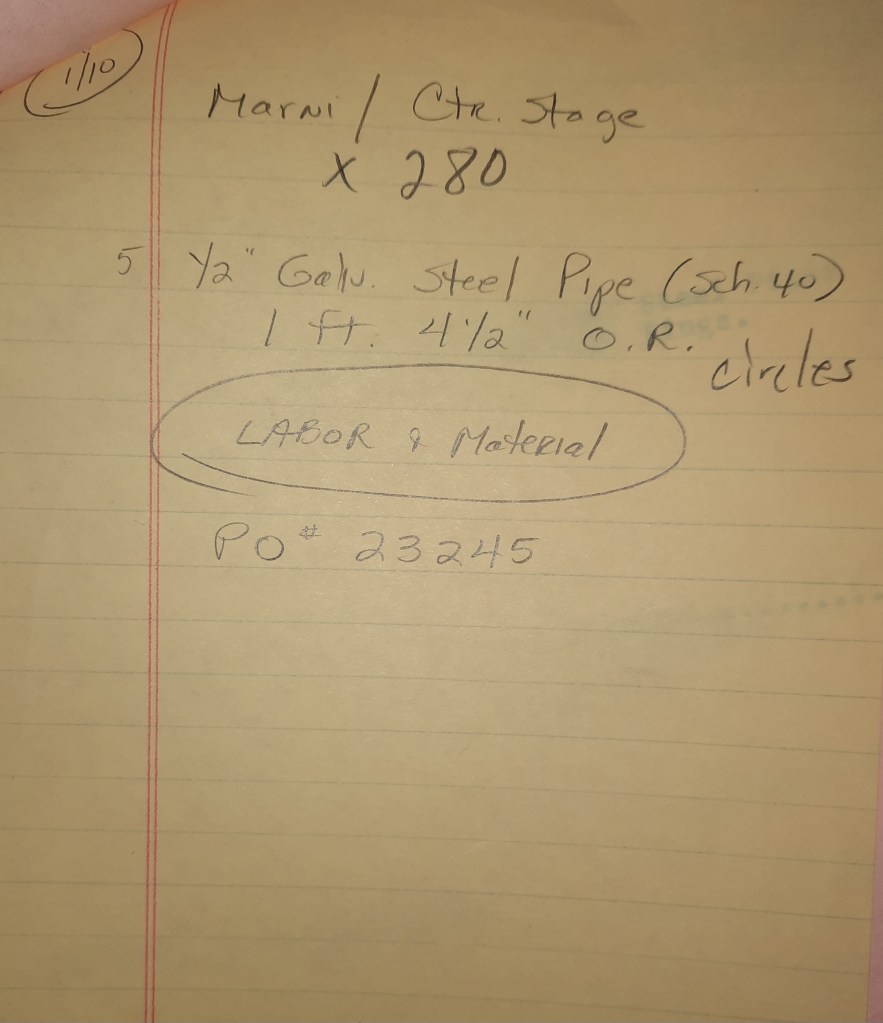 1/10
Marni / Ctr. Stage
x 280
5 1/2" Galv. Steel Pipe (Sch. 40)
1 ft. 4 1/2" O.R. circles
LABOR & Material
PO# 23245